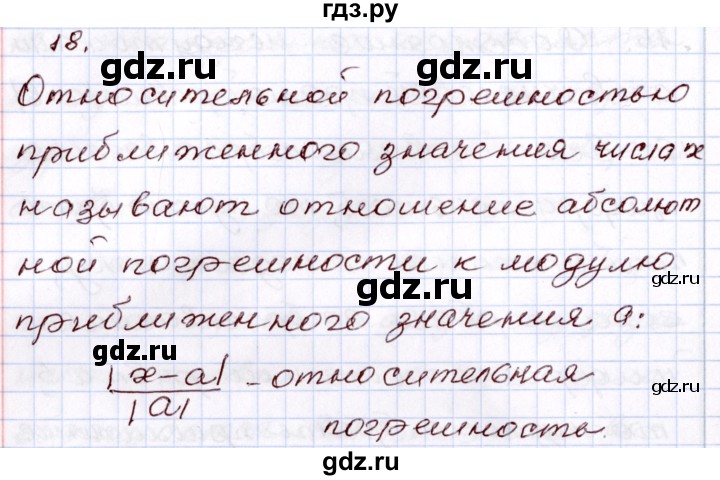 гдз.ру
18.
gdz.ru gdz.ru
Относительной погрешностью
приближенного значения числа x
называют отношение абсолют
gdz.ru gdz.ru
ной погрешности к модулю
gdz.ru
приближенного значения a:
|x-a| - относительная
|a|
gdz.ru gdz.ru
погрешность.
gdz.ru